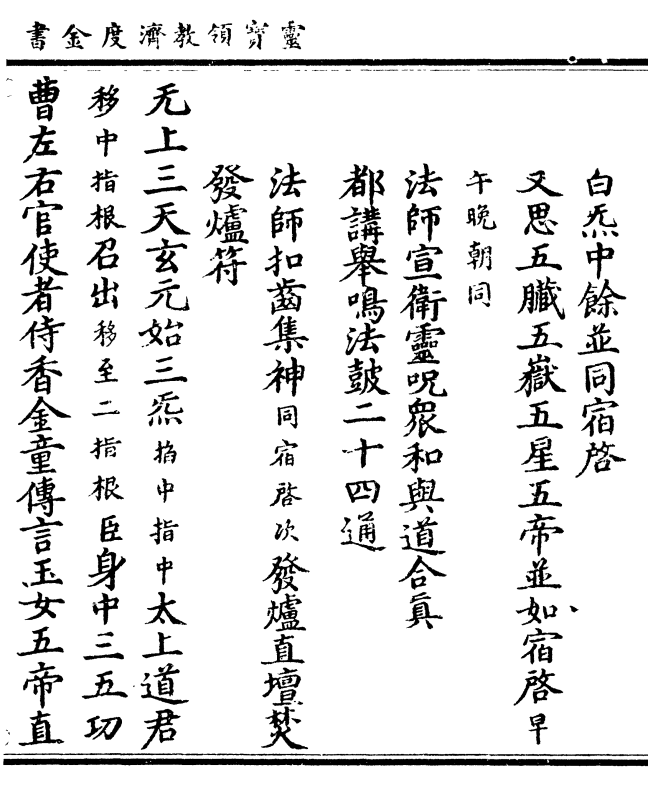 靈寶領教濟度金書
白炁中餘並同宿啓
又思五臟五嶽五星五帝並如宿啓早
午晚朝同
法師宣衛靈呪衆和與道合眞
都講舉鳴法鼓二十四通
法師扣齒集神同宿啓次發爐直壇焚
發爐符
无上三天玄元始三炁掐中指中太上道君
移中指根召出移至二指根臣身中三五功
曹左右官使者侍香金童傳言玉女五帝直